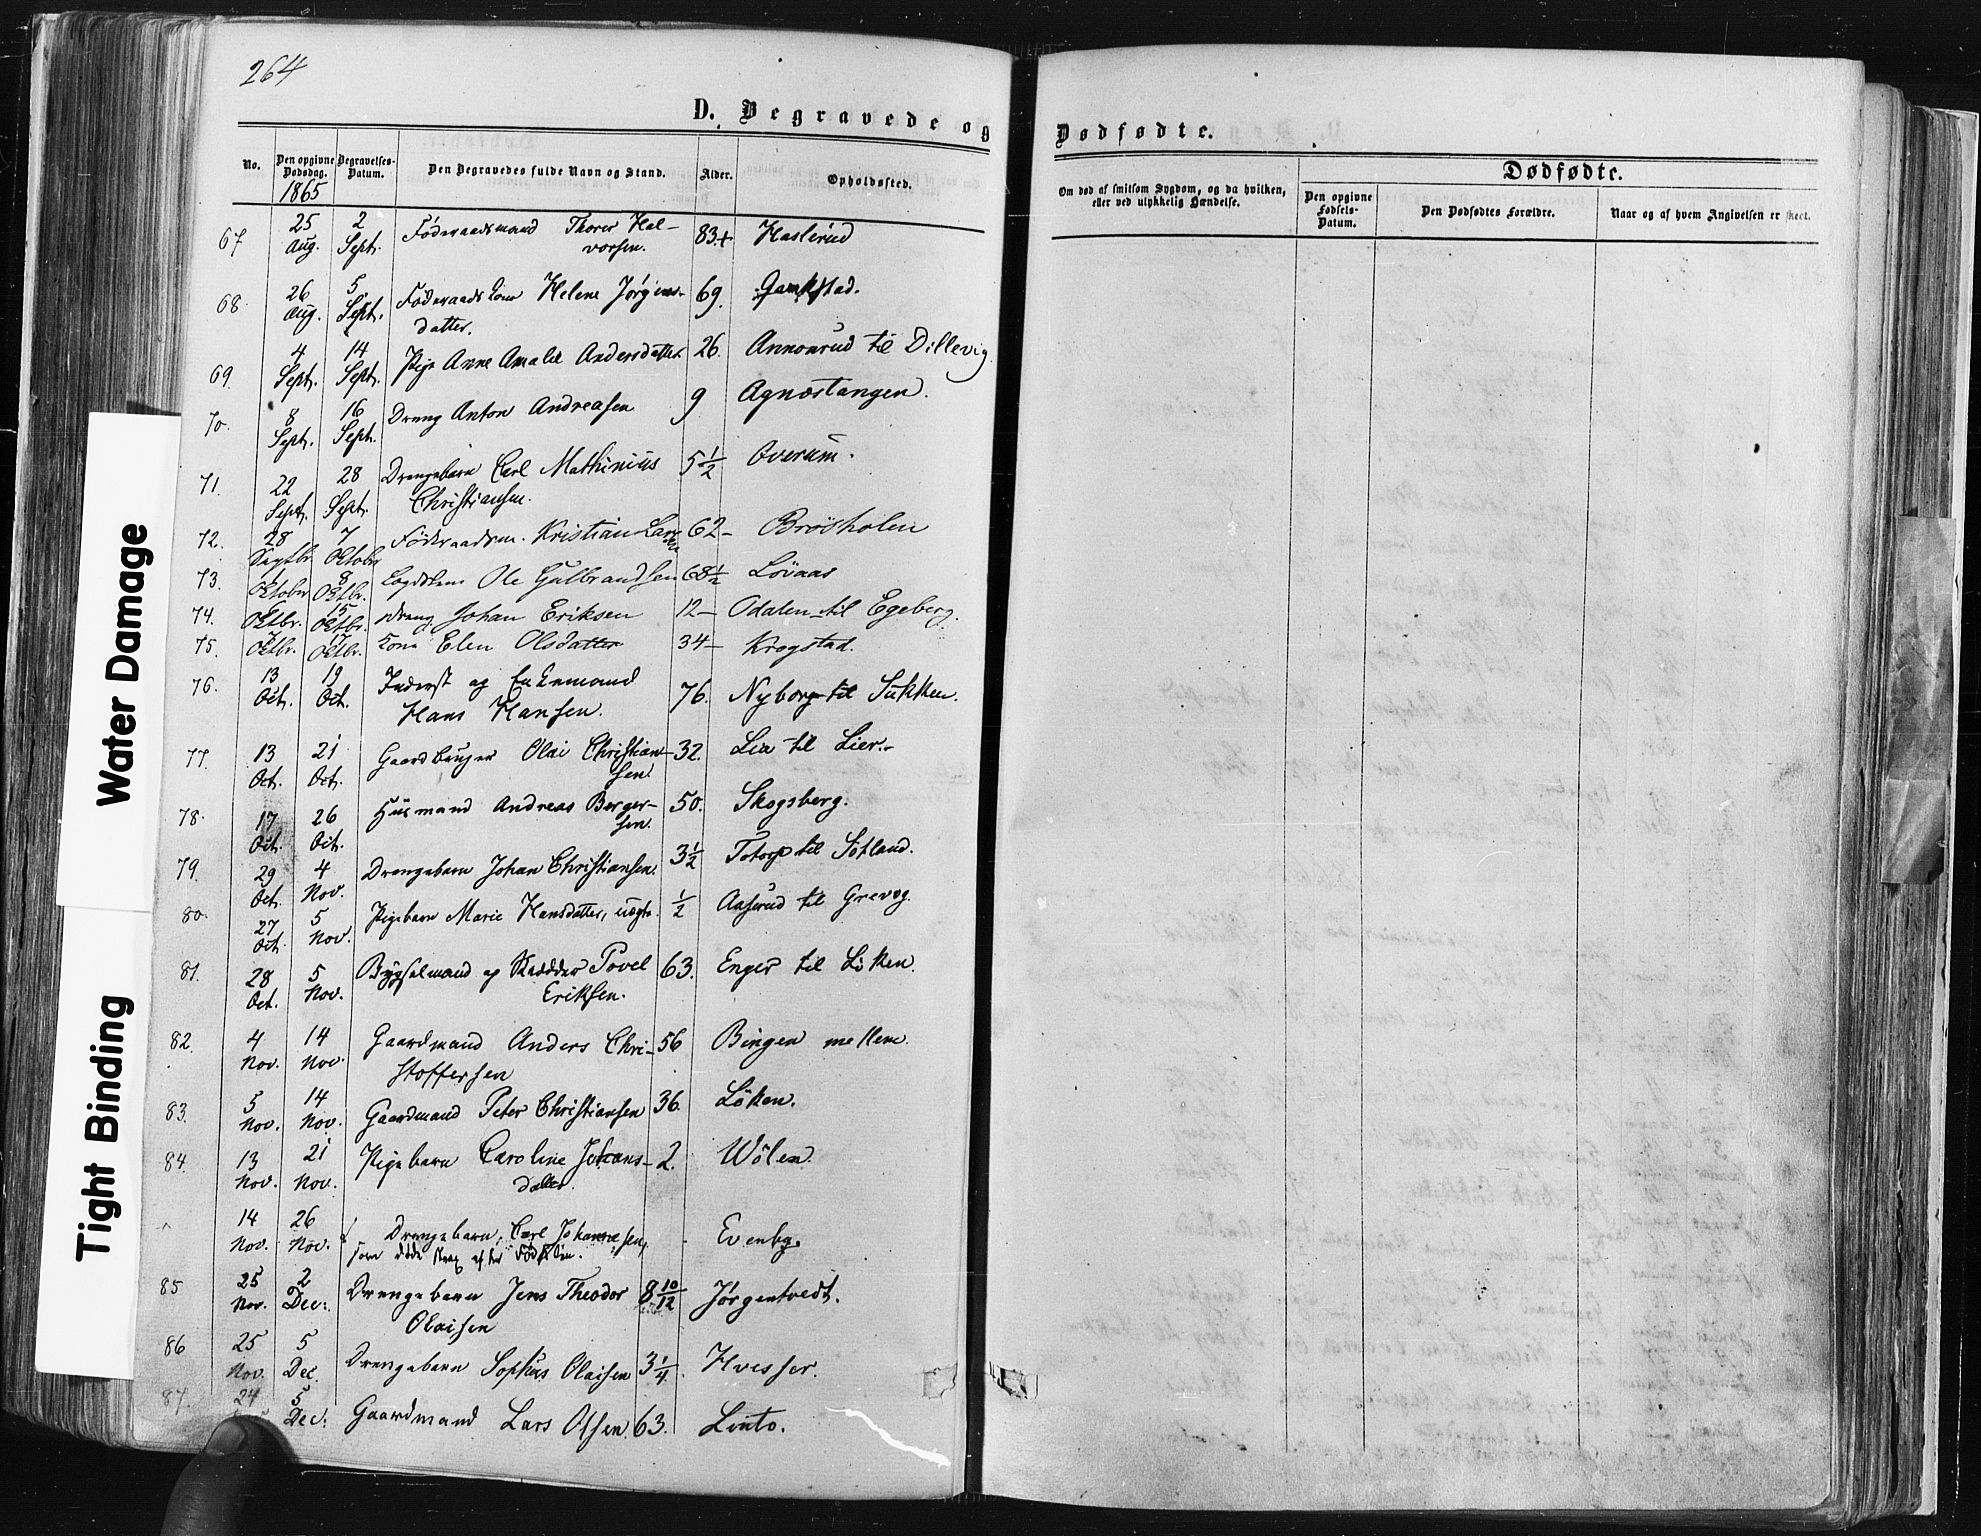 264
D. Begravede og
Dødfødte.
No.
Den opgivne Dødsdag.
1865
Begravelses-Datum.
Den Begravedes fulde Navn og Stand.
Alder.
Opholdssted.
Om død af smitsom Sygdom, og da hvilken,
eller ved ulykkelig Hændelse.
Dødfødte.
Den opgivne Fødsels-Datum.
Den Dødfødtes Forældre.
Naar og af hvem Angivelsen er skeet.
67 25 Aug. 2 Sept. Föderaadsmand Thorer Hal-
vorsen. 83 Haslerud
68. 26 Aug. 5 Sept. Föderaadskone Helene Jørgens-
datter. 69.
69. 4 Sept. 14 Sept. Pige Anne Amalie Andersdatter 26. Annonrud til Dillevig
70. 8 Sept. 16 Sept. Dreng Anton Andreasen 9 Agnæstangen.
71. 22 Sept. 28 Sept. Drengebarn Carl Mathinius
Christiansen. 5 1/2 Overum.
72. 28 Septbr 7 Oktober Föderaadsm. Kristian Larsen 62- Brösholen
73. Oktober 8 Oktbr. Ole Gulbrandsen 68 1/2 Lövaas
74. Oktbr. 15 Oktbr. dreng Johan Eriksen 12- Odalen til Egeberg.
75. 7 Oktbr. 17 Oktbr. Kone Elen Olsdatter 34- Krogstad.
76. 13 Oct. 19 Oct. Inderst og Enkemand
Hans Hansen. 76. Nyborg til Sukken.
77. 13 Oct. 21 Oct. Gaardbruger Olai Christian-
sen. 32. Lia til Lier.
78. 17 Oct. 26 Oct. Huusmand Andreas Berger-
sen. 50. Skogsberg.
79. 29 Oct. 4 Nov. Drengebarn Johan Christiansen. 3 1/2 Totorp til Sötland.
80. 27 Oct. 5 Nov. Pigebarn Marie Hansdatter, uægte. 1/2 Aaserud til Grevog.
81. 28 Oct. 5 Nov. Bygselmand og Skrædder Povel
Eriksen. 63. Enger til Löken.
82. 4 Nov. 14 Nov. Gaardmand Anders Chri-
stoffersen 56 Bingen mellem.
83. 5 Nov. 14 Nov. Gaardmand Peter Christiansen 36. Löken.
84. 13 Nov. 21 Nov. Pigebarn Caroline Johans-
datter. 2. Wölen.
14 Nov. 26 Nov. Drengebarn, Carl Johannesen,
som døde strax efter Fødselen. Evenby.
85 25 Nov. 2 Dec. Drengebarn Jens Theodor
Olaisen 8 10/12 Jørgentvedt.
86 25 Nov. 5 Dec. Drengebarn Sophus Olaisen 3 1/4. Hvesser.
87. 24 5 Dec. Gaardmand Lars Olsen. 63. Linto.
Water Damage
Tight Binding